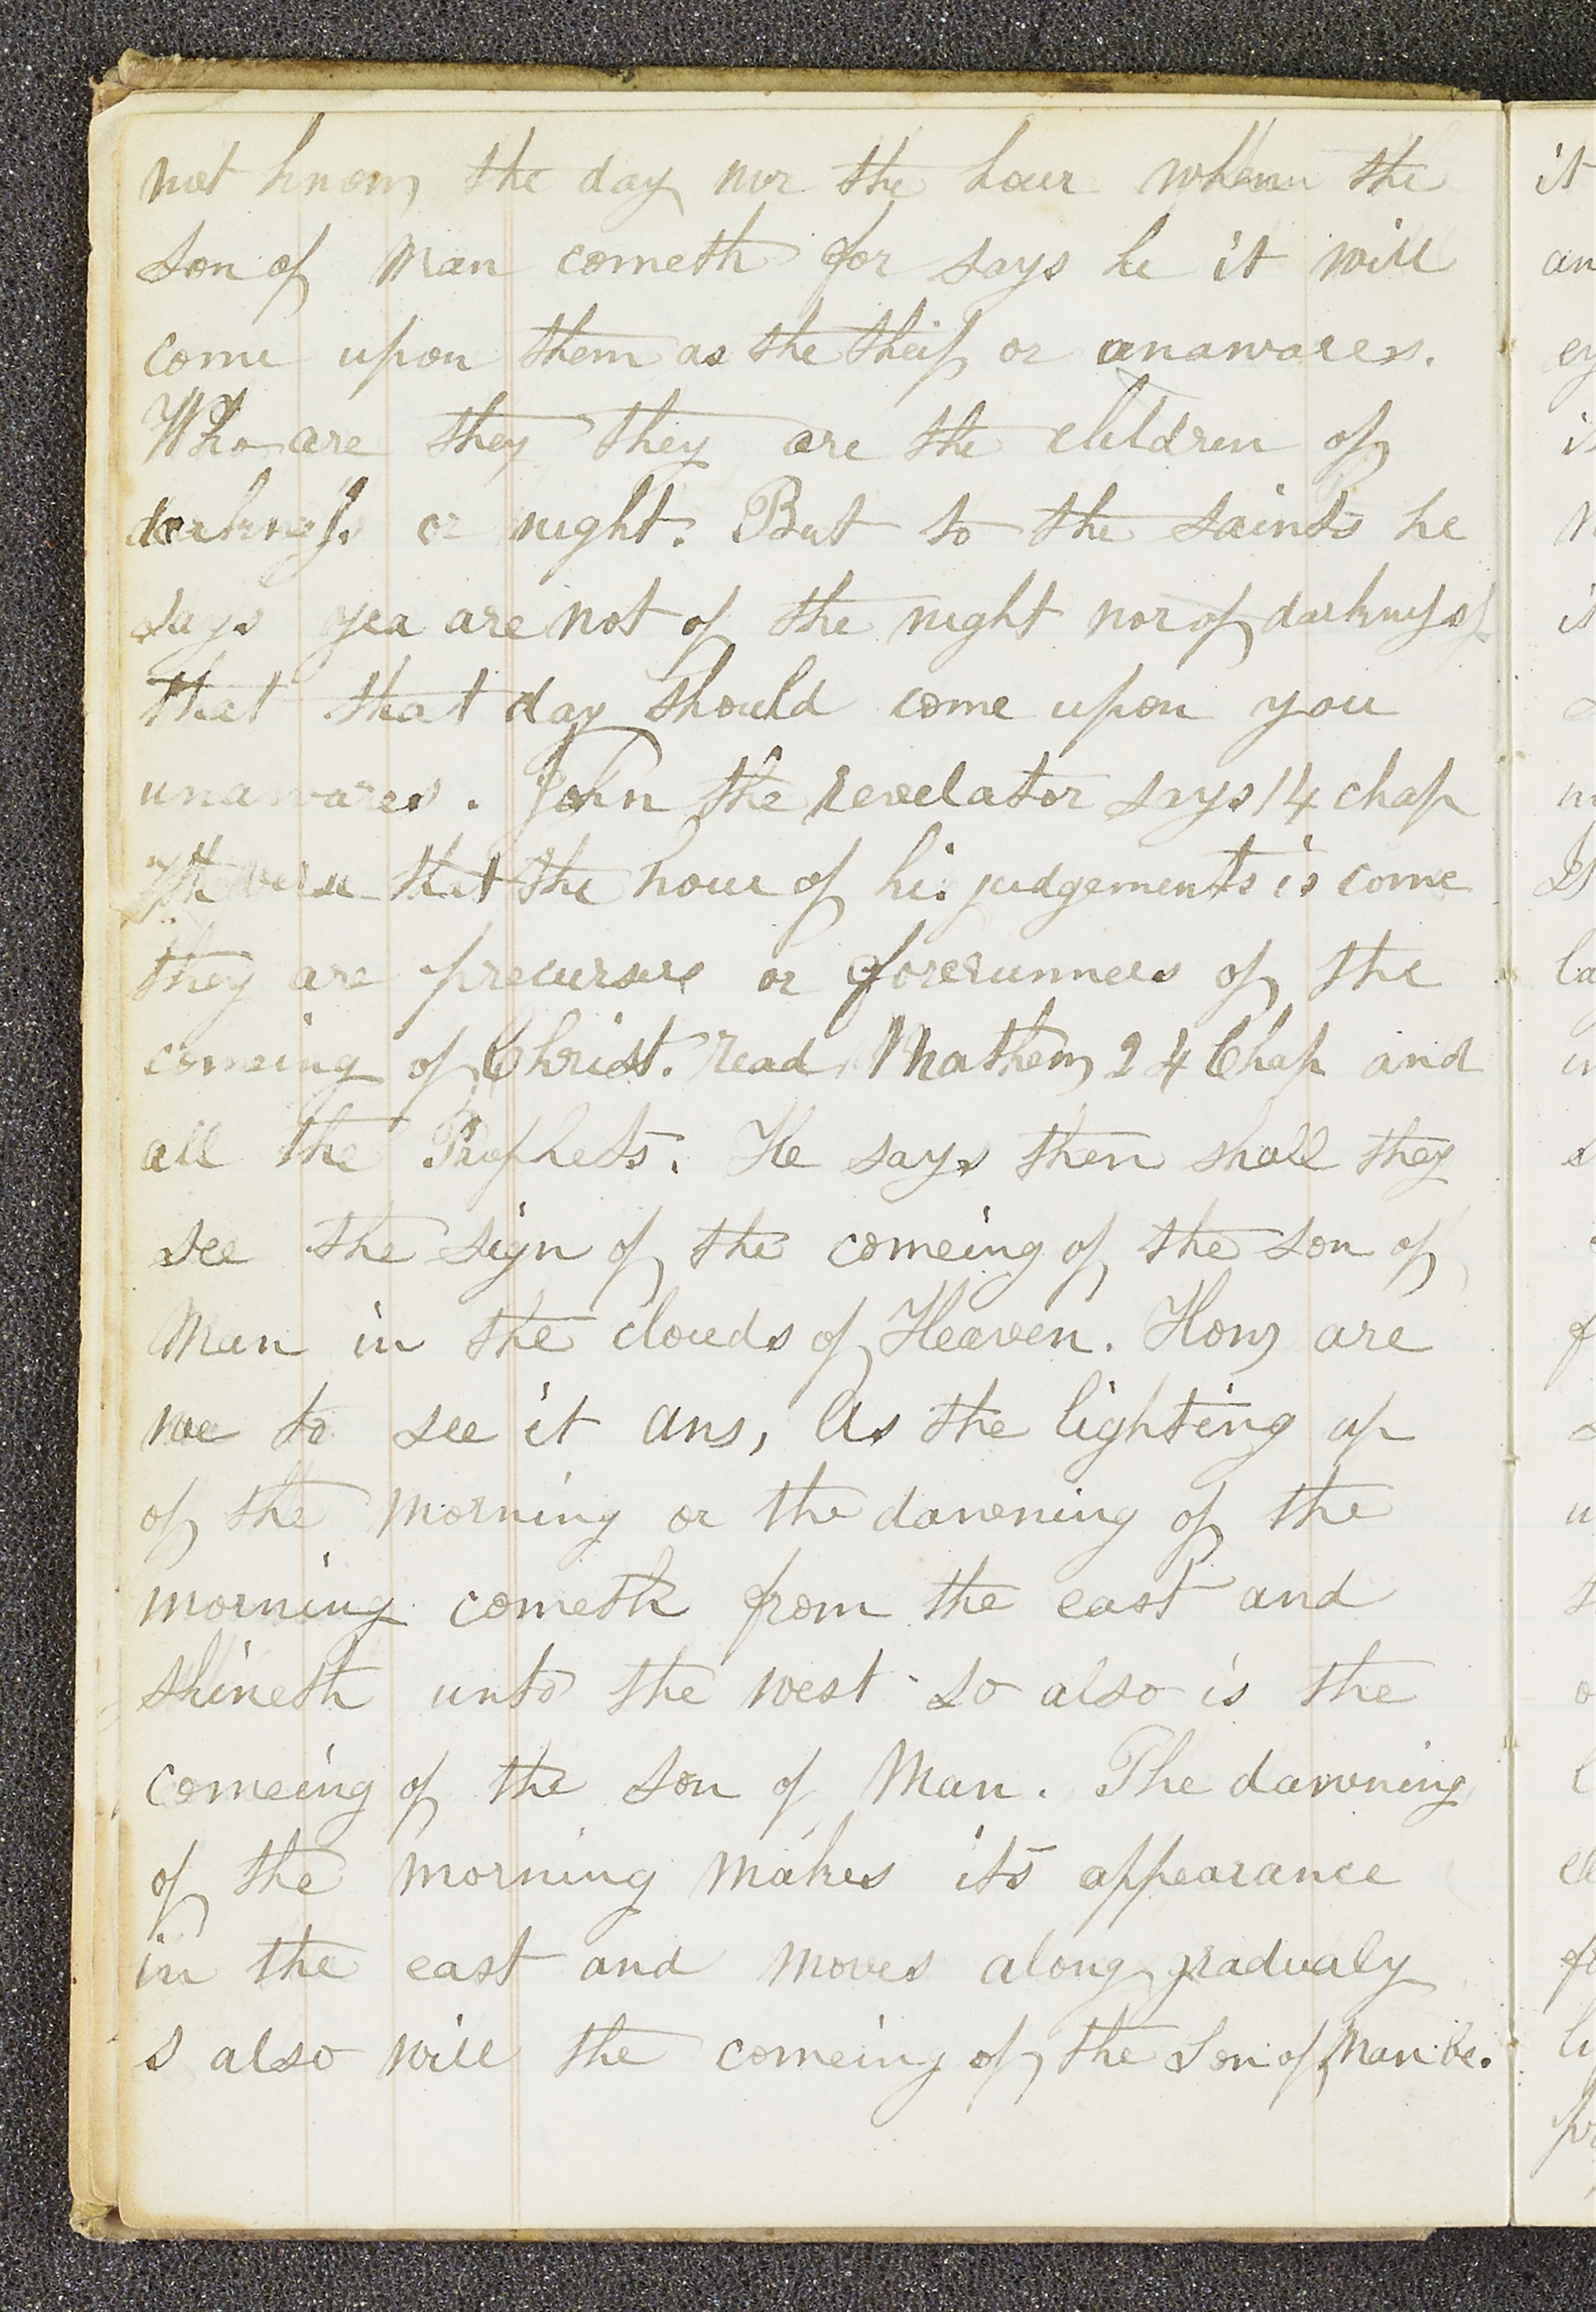 not know the day nor the hour when the
son of Man cometh for says he it will
come upon them as the theif or anawares.
Who are they they are the children of
darkness or night. But to the saints he
says yea are not of the night nor of darkness
that that day should come upon you
unawares. John the revelator says 14 chap
7th verse that the hour of his judgements is come
they are precursurs or forerunners of the
comeing of Christ. read Mathew 24 Chap and
all the Prophets. He says then shall they
see the sign of the comeing of the son of
Man in the clouds of Heaven. How are
we to see it ans, As the lighting up
of the morning or the dawening of the
morning cometh from the east and
shineth unto the west so also is the
comeing of the son of Man. The dawning
of the morning makes its appearance
in the east and moves along gradualy
s also will the comeing of the Son of Man be.